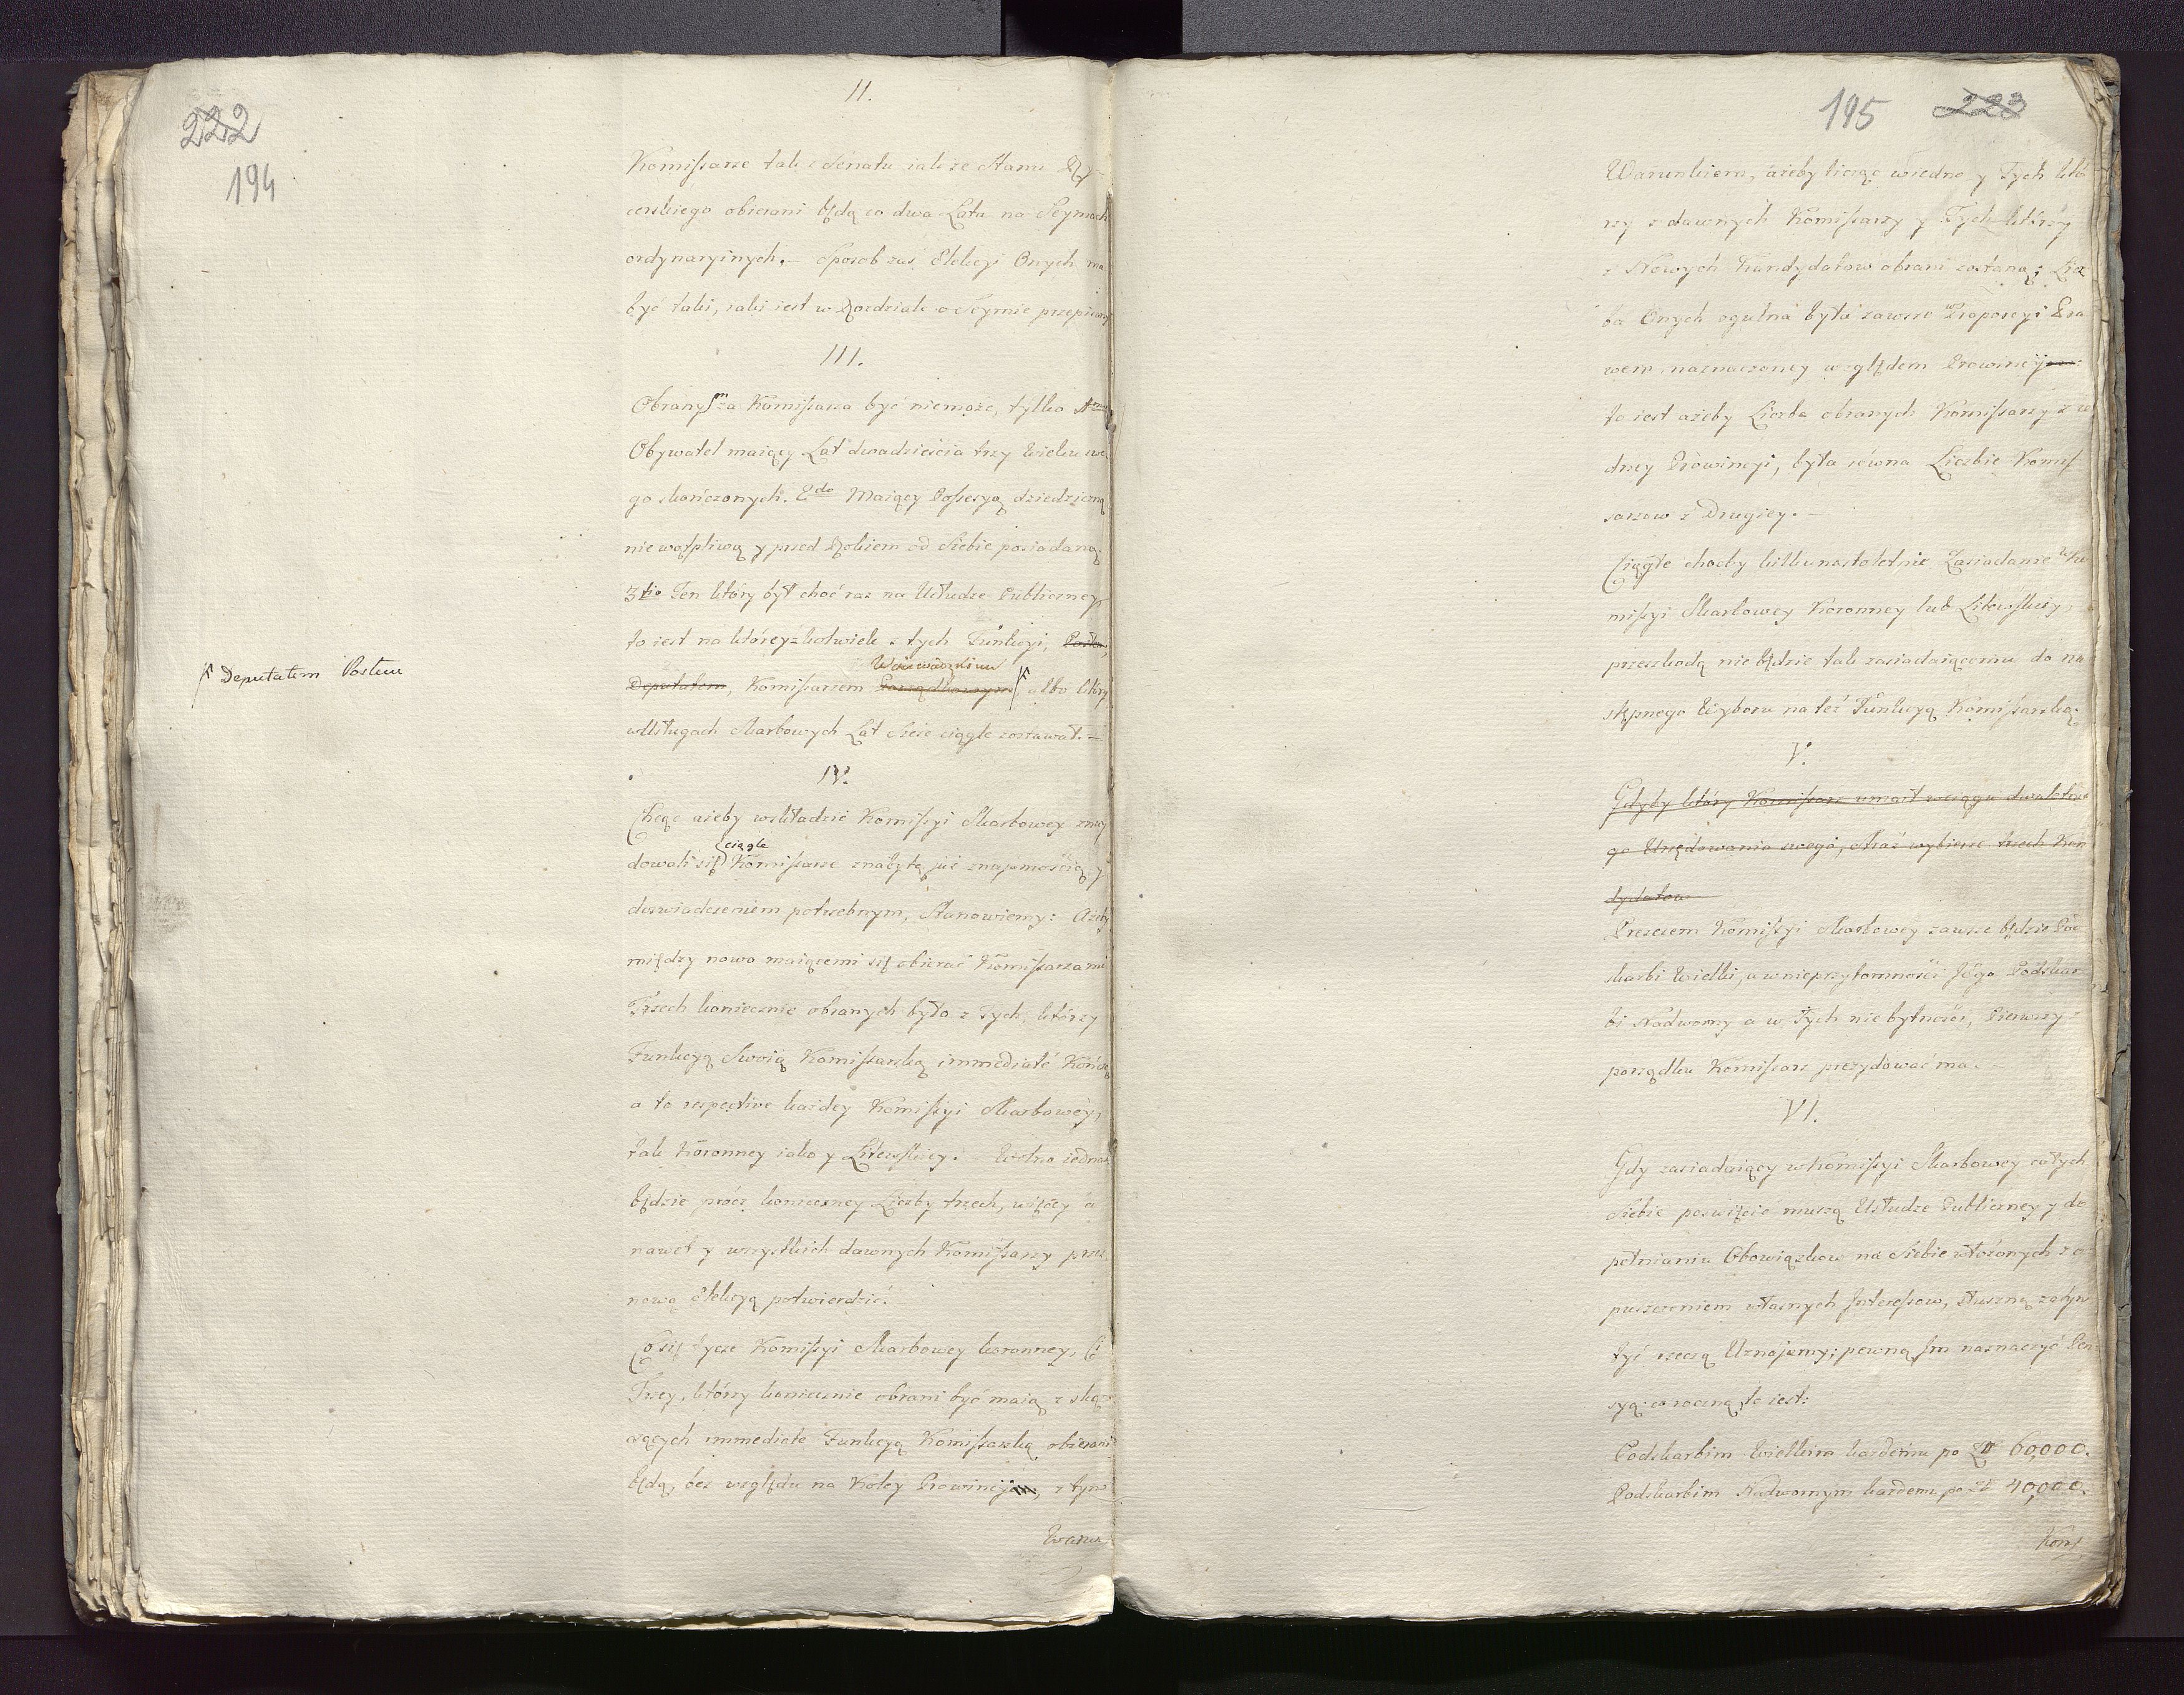 222
194
II.
Komissarze tak z Senatu iak ze Stanu Ry-
cerskiego obierani będą co dwa Lata na Seymach
ordynaryinych. – Sposob zaś Elekcyi Onych ma
być taki, iaki iest w Rozdziale o Seymie przepisany
III.
Obranym za Komissarza być niemoże, tylko 1mo
Obywatel maiący Lat dwadzieścia trzy Wieku swe
go skończonych. 2do Maiący Possesyą dziedziczną
niewątpliwą y przed Rokiem od Siebie posiadaną.
3tio Ten który był choć raz na Usłudze Publiczney
to iest na któreyzkolwiek z tych Funkcyi, Posłem,
Woiewodzkim
Deputatem, Komissarzem Porządkowym albo który
Deputatem Posłem
w Usługach Skarbowych Lat sześć ciągle zostawał. –
IV.
Chcąc ażeby w składzie Komissyi Skarbowey znay
ciągle
dowali się Komissarze z nabytą iuż znaiomością y
doswiadczeniem potrzebnym, Stanowiemy: Ażeby
między nowo maiącemi się obierać Komissarzami
Trzech koniecznie obranych było z Tych, którzy
Funkcyą Swoią Komissarską immediaté Kończą
a to respective każdey Komissyi Skarbowey,
tak Koronney iako y Litewskiey. Wolno iednak
będzie prócz konieczney Liczby trzech, więcey a
nawet y wszystkich dawnych Komissarzy przez
nową Elekcyą potwierdzić.
Co się tycze Komissyi Skarbowey koronney, Ci
Trzey, którzy koniecznie obrani być maią z skoń-
czących immediate Funkcyą Komissarską obierani
będą, bez względu na Koley Prowincyi, z tym
Warun
195 223
Warunkiem, ażeby licząc wiedno y Tych któ
rzy z dawnych Komissarzy y Tych którzy
z Nowych Kandydatow obrani zostaną; Licz
ba Onych ogulna była zawsze w Proporcyi Pra
wem naznaczoney względem Prowincyi
to iest ażeby Liczba obranych Komissarzy z ie
dney Prowincyi, była równa Liczbie Komis
sarzow z Drugiey. –
Ciągłe choćby kilkunastoletnie Zasiadanie w Ko
missyi Skarbowey Koronney lub Litewskiey,
przeszkodą nie będzie tak zasiadaiącemu do na
stępnego Wyboru na też Funkcyą Komissarską.
V.
Gdyby który Komissarz umarł w ciągu dwuletnie
go Urzędowania swego, Straż wybierze trzech Kan
dydatow
Prezesem Komissyi Skarbowey zawsze będzie Pod
skarbi Wielki, a w nieprzytomności Jego Podskar
bi Nadworny a w Tych niebytności, Pierwszy z
porządku Komissarz prezydować ma. –
VI.
Gdy zasiadaiący w Komissyi Skarbowey całych
Siebie poswięcić muszą Usłudze Publiczney y do
pełnianiu Obowiązkow na Siebie włożonych z o
puszczeniem własnych Interessow, słuszną zatym
być rzeczą Uznaiemy; pewną Im naznaczyć Pen
syą coroczną, to iest:
Podskarbim Wielkim każdemu po Zł 60,000.
Podskarbim Nadwornym każdemu po zł 40,000.
Kom